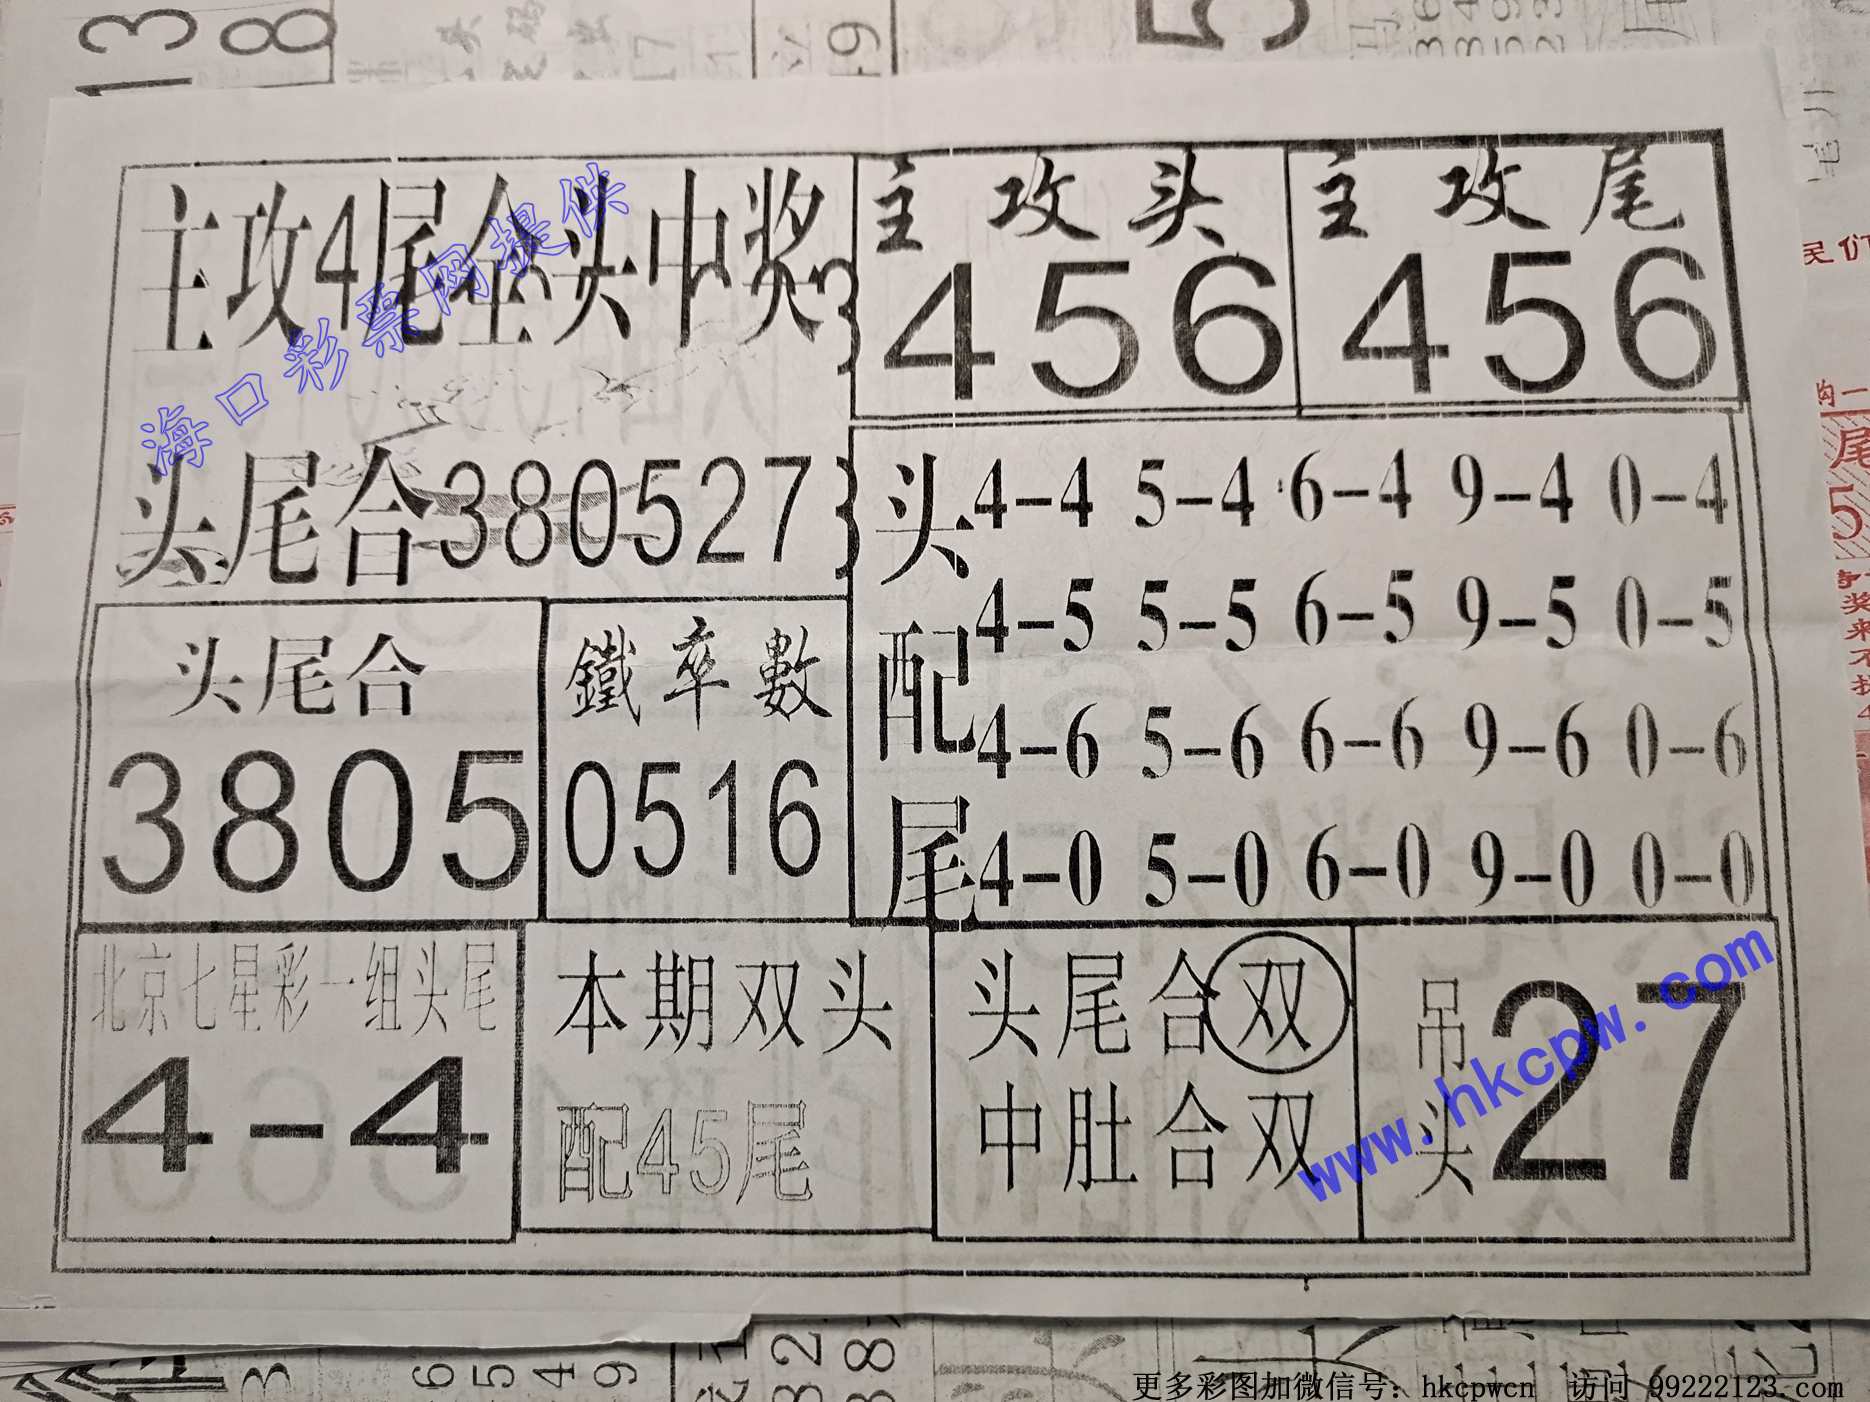 主攻4尾全头中奖
海口彩票网提供
头尾合380527
主攻头
456
主攻尾
456
头配尾
4-4 5-4 6-4 9-4 0-4
4-5 5-5 6-5 9-5 0-5
4-6 5-6 6-6 9-6 0-6
4-0 5-0 6-0 9-0 0-0
头尾合
3805
鐵率數
0516
北京七星彩一组头尾
4-4
本期双头
配45尾
头尾合双
中肚合双
吊头
27
www.hkcpw.com
更多彩图加微信号：hkcpwcn 访问 99222123.com